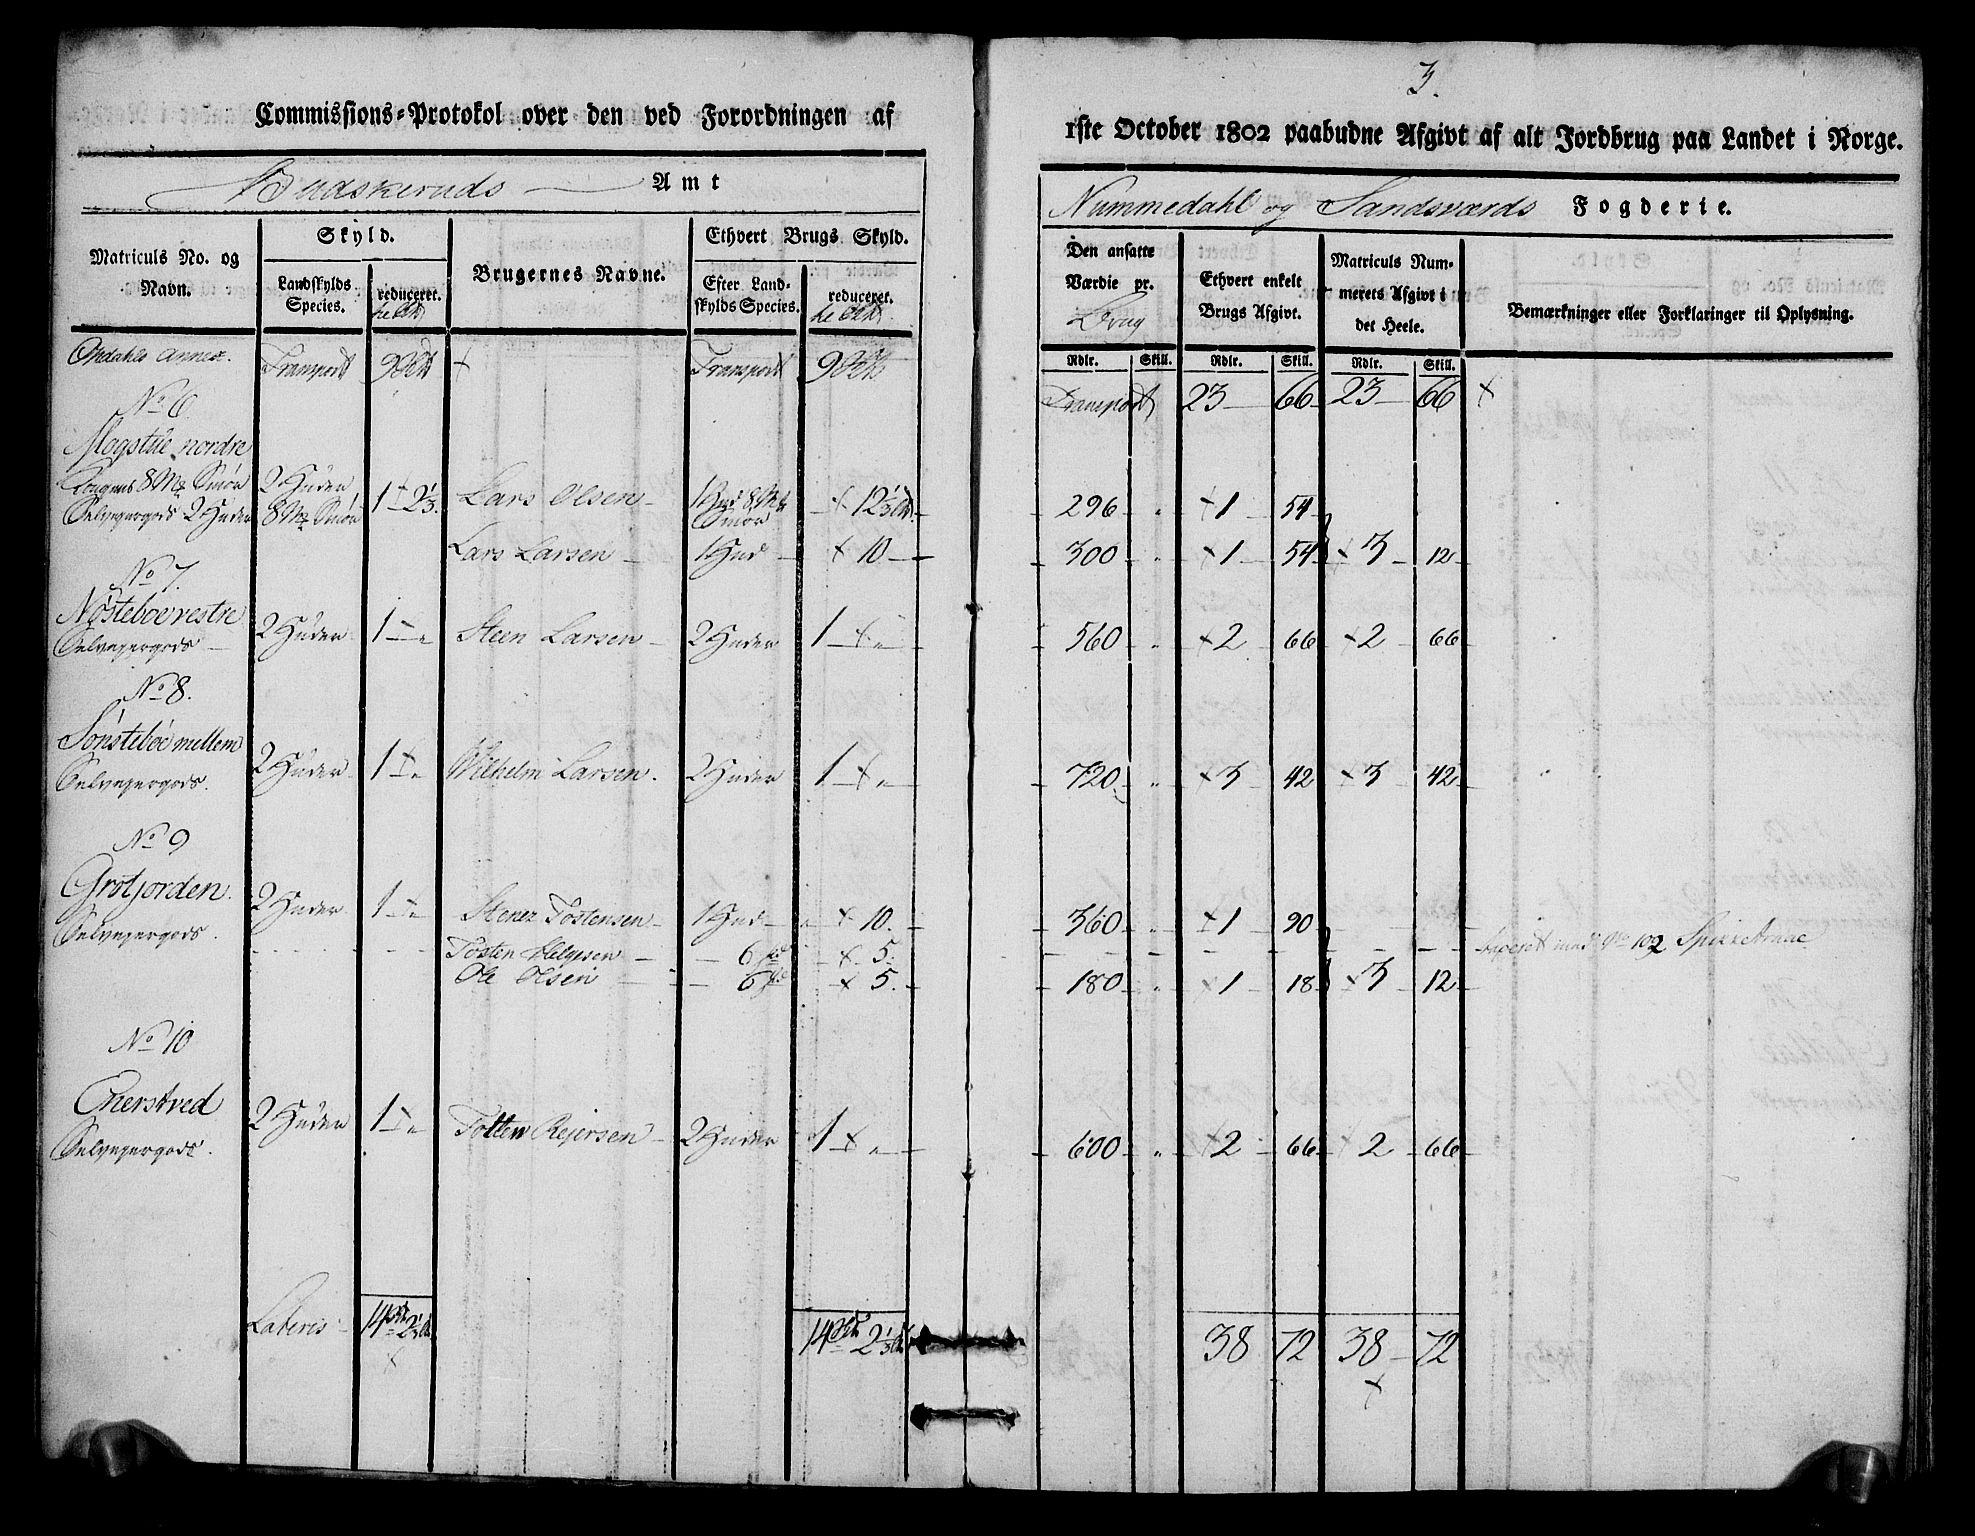 3.
Commissions=Protokol over den ved Forordningen af
1ste October 1802 paabudne Afgivt af alt Jordbrug paa Landet i Norge.
Budskeruds Amt
Nummedahl og Sandsværds Fogderie.
Matriculs No. og Navn.
Skyld.
Landskylds Species.
reduceret.
Brugernes Navne.
Ethvert Brugs Skyld.
Efter Landskylds Species.
reduceret.
Den ansatte Værdie pr. Brug
Ethvert enkelt Brugs Afgivt.
Matriculs Nummerets Afgivt i det Heele.
Bemærkninger eller Forklaringer til Oplysning.
Rdlr. Skill. Rdlr. Skill. Rdlr. Skill.
Opdahls Annex. Transport 9 Transport 9
Transport 23 66 23 66
No 6
nordre
8 Mk Smør 2 Huder
Selvejergods 2 Huder 8 Mk Smør 1 2 1/3. Lars Olsen 1 Hud 8 Mk Smør 12 1/3 296 " 1 54
Lars Larsen 1 Hud 10 300 " 1 54 3 12
No 7.
Nøsteboe vestre
Selvejergods 2 Huder 1 " Steen Larsen 2 Huder 1 " 560 " 2 66 2 66
No 8.
Sønsteboe mellem
Selvejergods. 2 Huder 1 " Wilhelm Larsen. 2 Huder 1 " 720 " 3 42 3 42
No 9
Grotjorden.
Selvejergods. 2 Huder 1 " Stener Tostensen 1 Hud 10. 360 " 1 90
Tosten Helgesen 6 5. No 102
Ole Olsen 6 5. 180 " 1 18 3 12
No 10
Enerstved
Selvejergods. 2 Huder 1 " Rejersen 2 Huder 1 " 600 " 2 66 2 66
Lateris 14 2 1/3 14 2 1/3 38 72 38 72